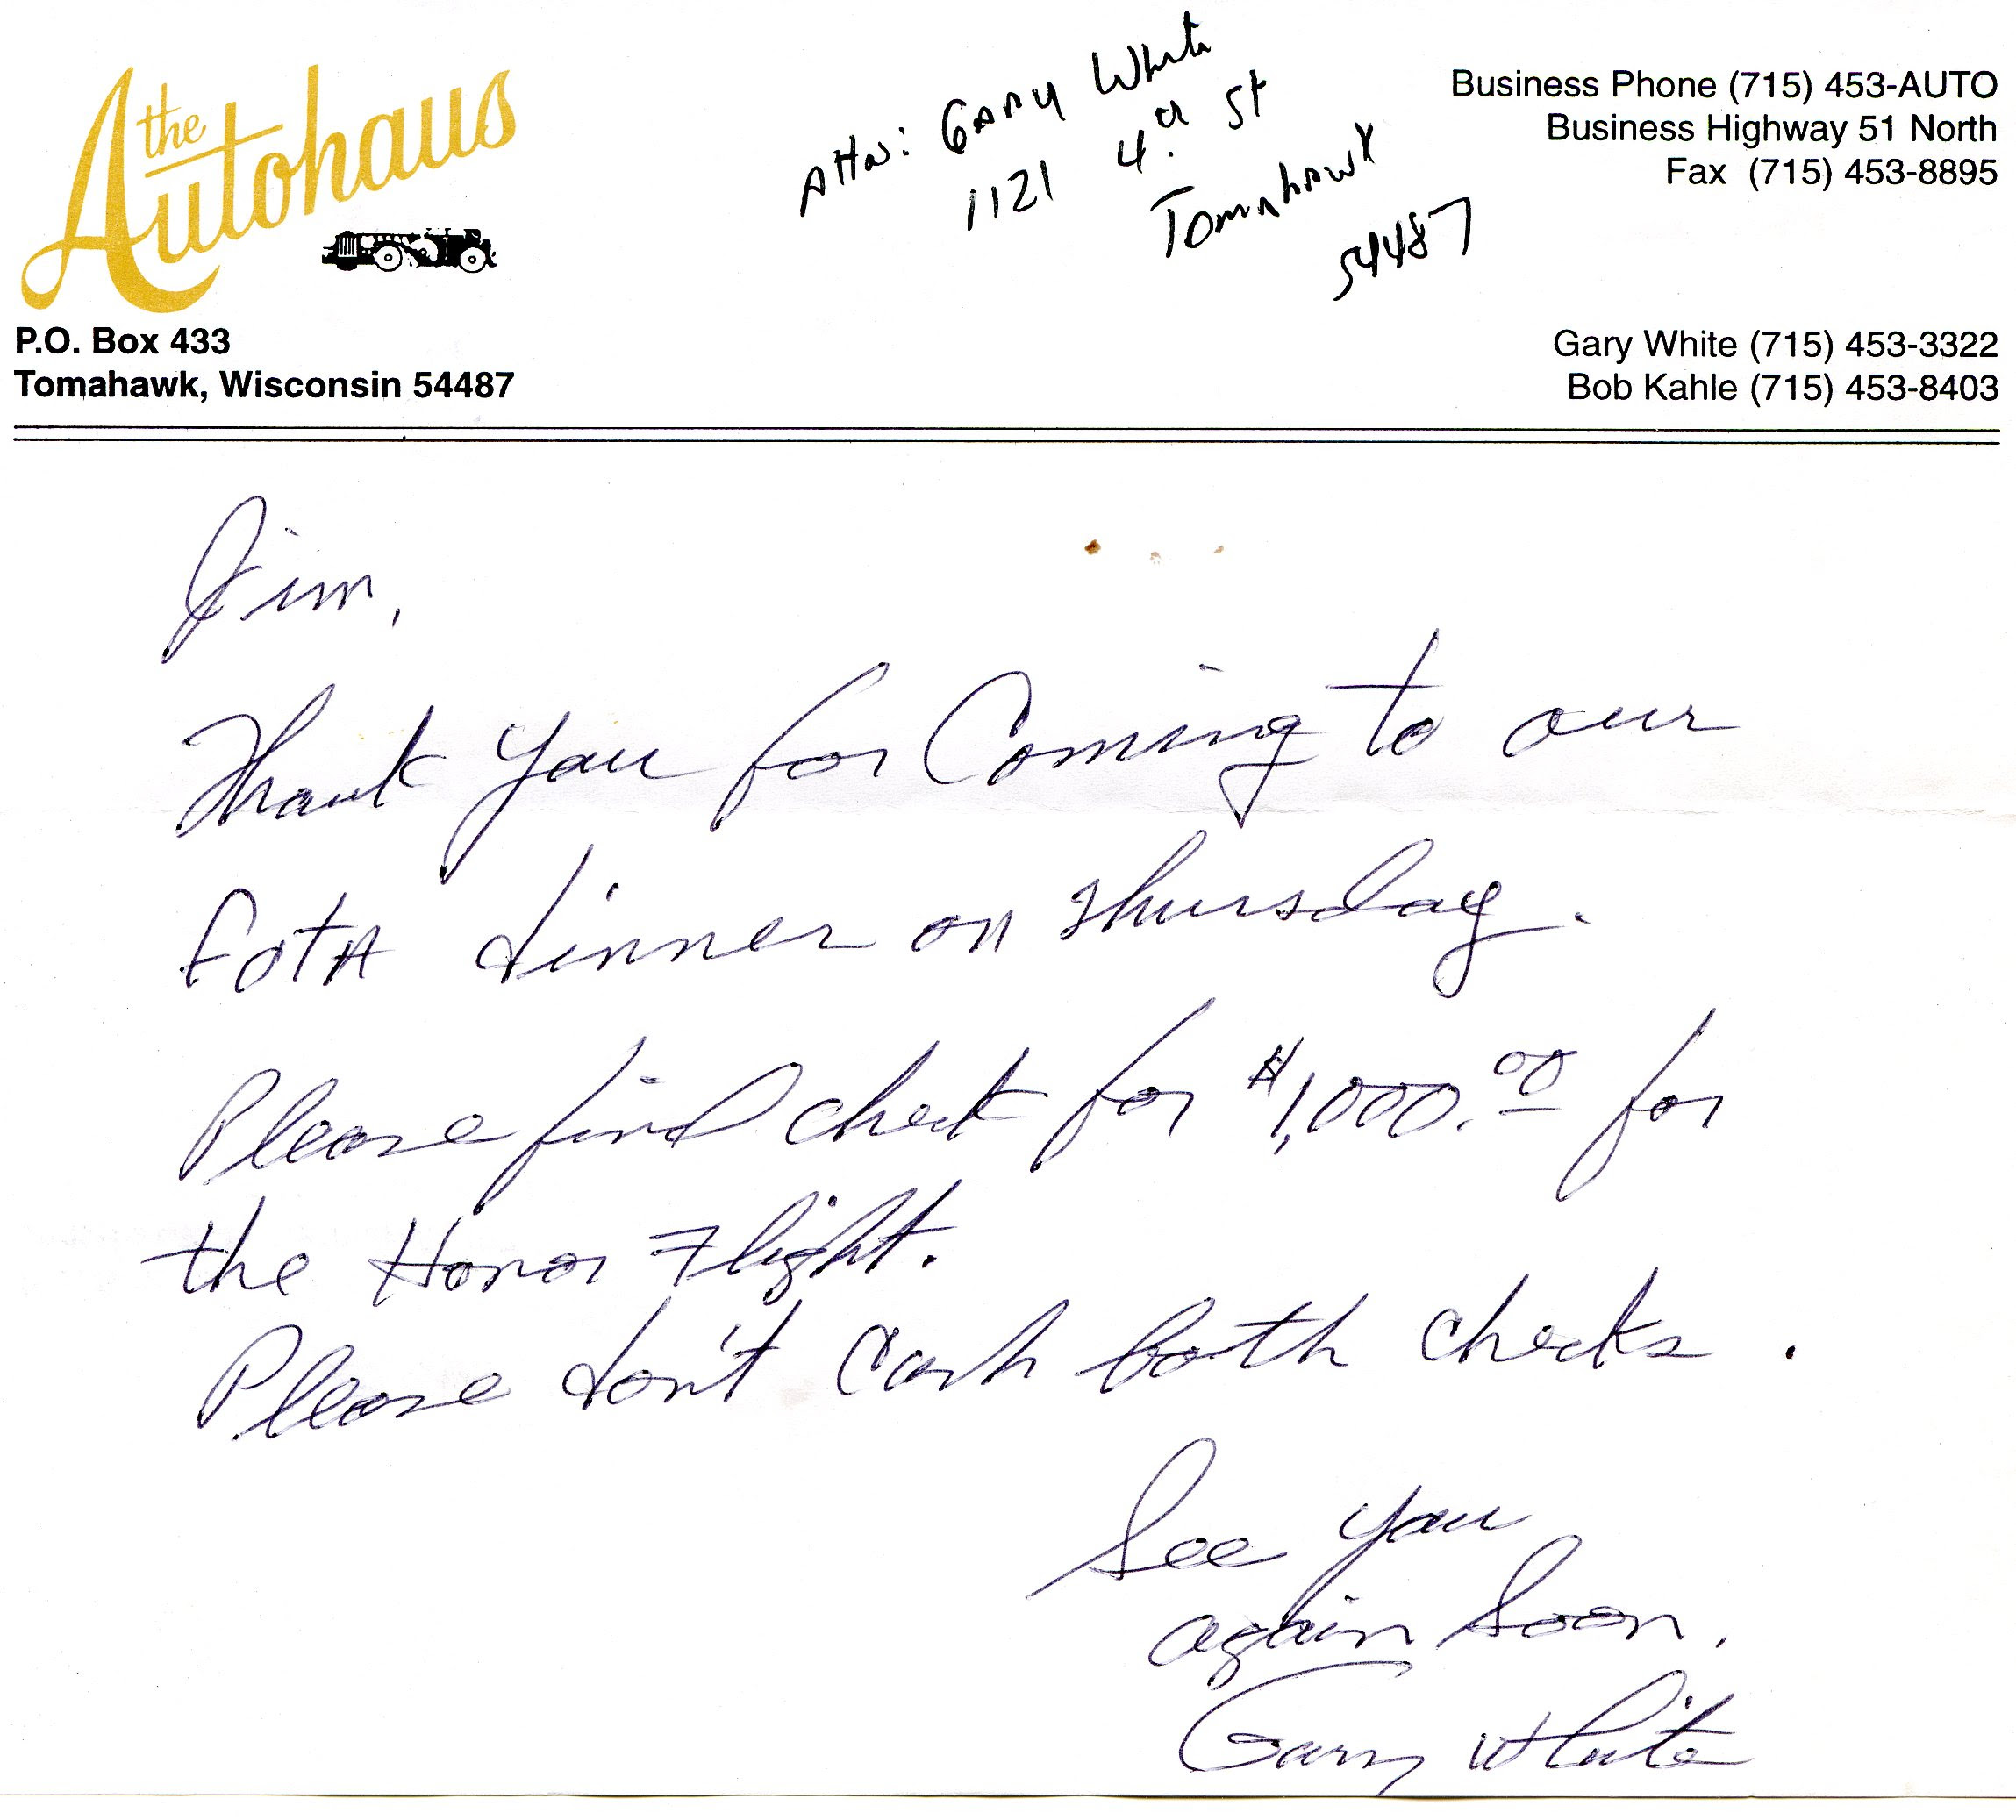 the
Autohaus
P.O. Box 433
Tomahawk, Wisconsin 54487
Attn: Gary White
1121 4th St
Tomahawk
54487
Business Phone (715) 453-AUTO
Business Highway 51 North
Fax (715) 453-8895
Gary White (715) 453-3322
Bob Kahle (715) 453-8403
Jim,
Thank you for Coming to our
EotA dinner on Thursday.
Please find check for $1,000.00 for
the Honor Flight.
Please don't Cash both checks.
See you
again Soon.
Gary White